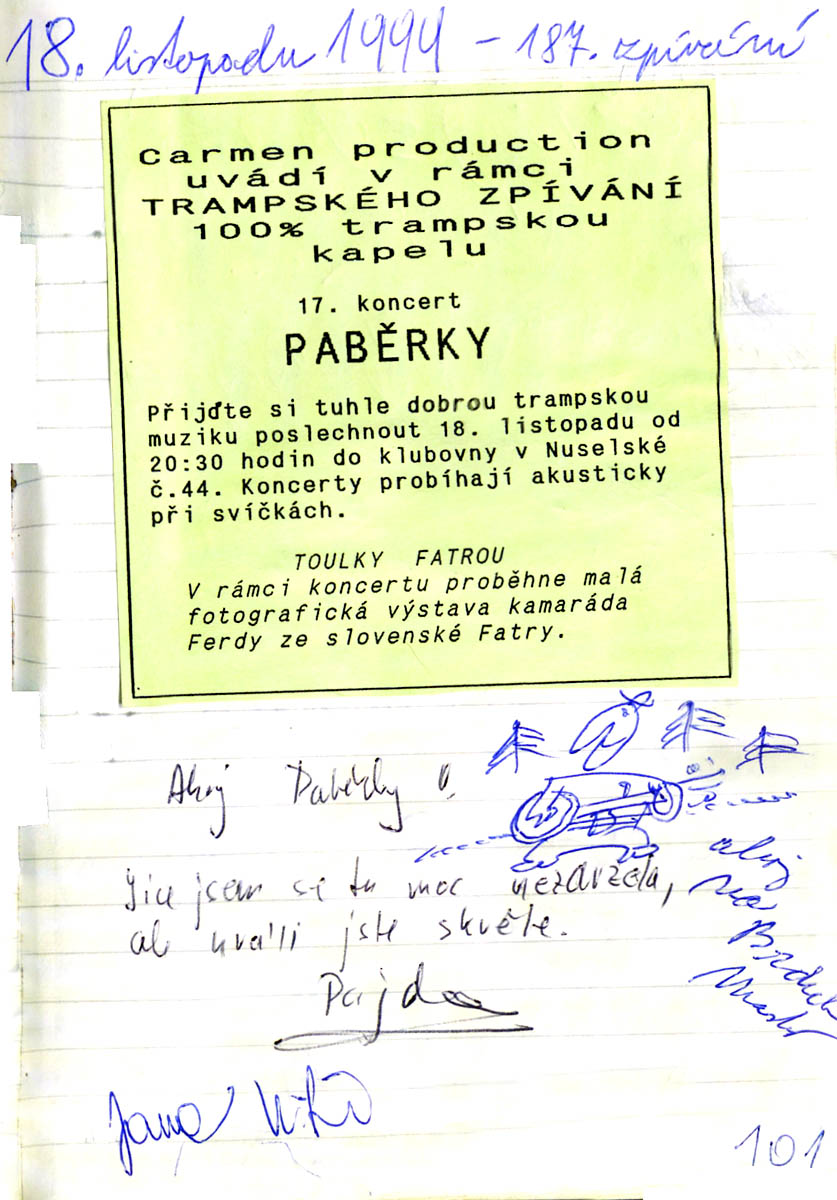 18. listopadu 1994 - 187. zpívání
Carmen production
uvádí v rámci
TRAMPSKÉHO ZPÍVÁNÍ
100% trampskou
kapelu
17. koncert
PABĚRKY
Přijďte si tuhle dobrou trampskou
muziku poslechnout 18. listopadu od
20:30 hodin do klubovny v Nuselské
č.44. Koncerty probíhají akusticky
při svíčkách.
TOULKY FATROU
V rámci koncertu proběhne malá
fotografická výstava kamaráda
Ferdy ze slovenské Fatry.
Ahoj Paběrky
jsem se tu moc nezdržela,
ale hráli jste skvěle.
Pajda
ahoj
na
Jana
101